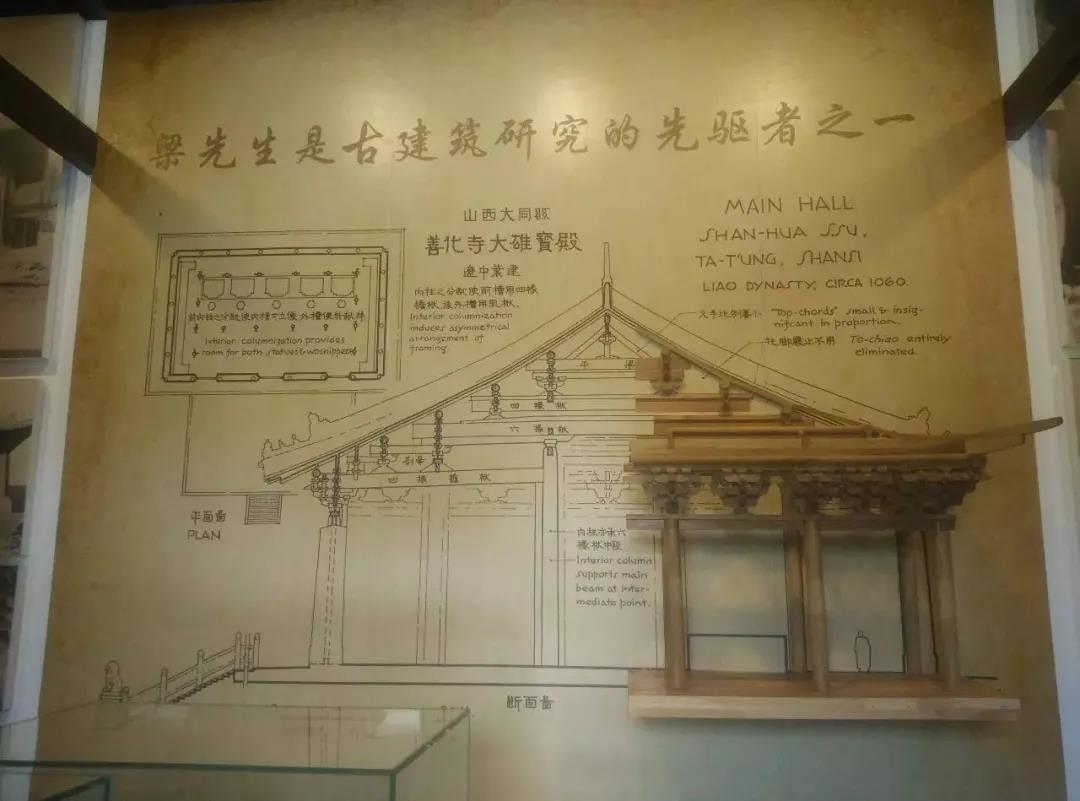 梁先生是古建筑研究的先驱者之一
山西大同縣
善化寺大雄寶殿
遼中葉建
內柱之分配使前槽用四椽
Interior columnization
induces asymmetrical
arrangement of
framing.
MAIN HALL
SHAN-HUA SSU,
TA-T'UNG, SHANSI
LIAO DYNASTY, CIRCA 1060.
叉手比例畧小 "Top-chords" small & insig-
nificant in proportion.
托脚廢止不用 To-chiao entirely
eliminated.
Interior columnization provides
room for both statues & worshippers
平梁
四椽栿
六椽栿
劄牽
四椽栿
內柱亦承六
椽栿中段
Interior column
supports main
beam at inter-
mediate point.
平面圖
PLAN
断面圖